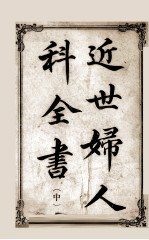 近世婦人
科全書
(中)